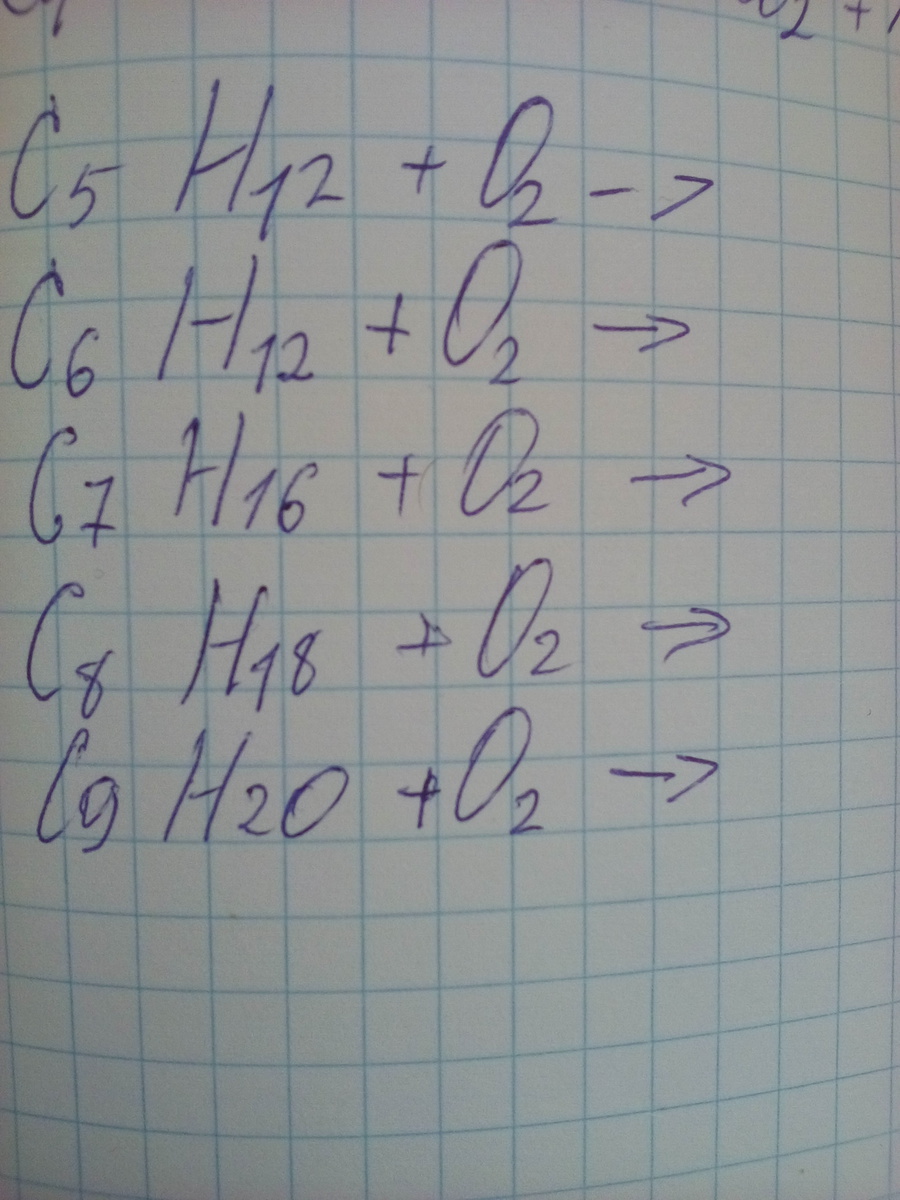 C5 H12 + O2 -->
C6 H12 + O2 →
C7 H16 + O2 →
C8 H18 + O2 →
C9 H20 + O2 →